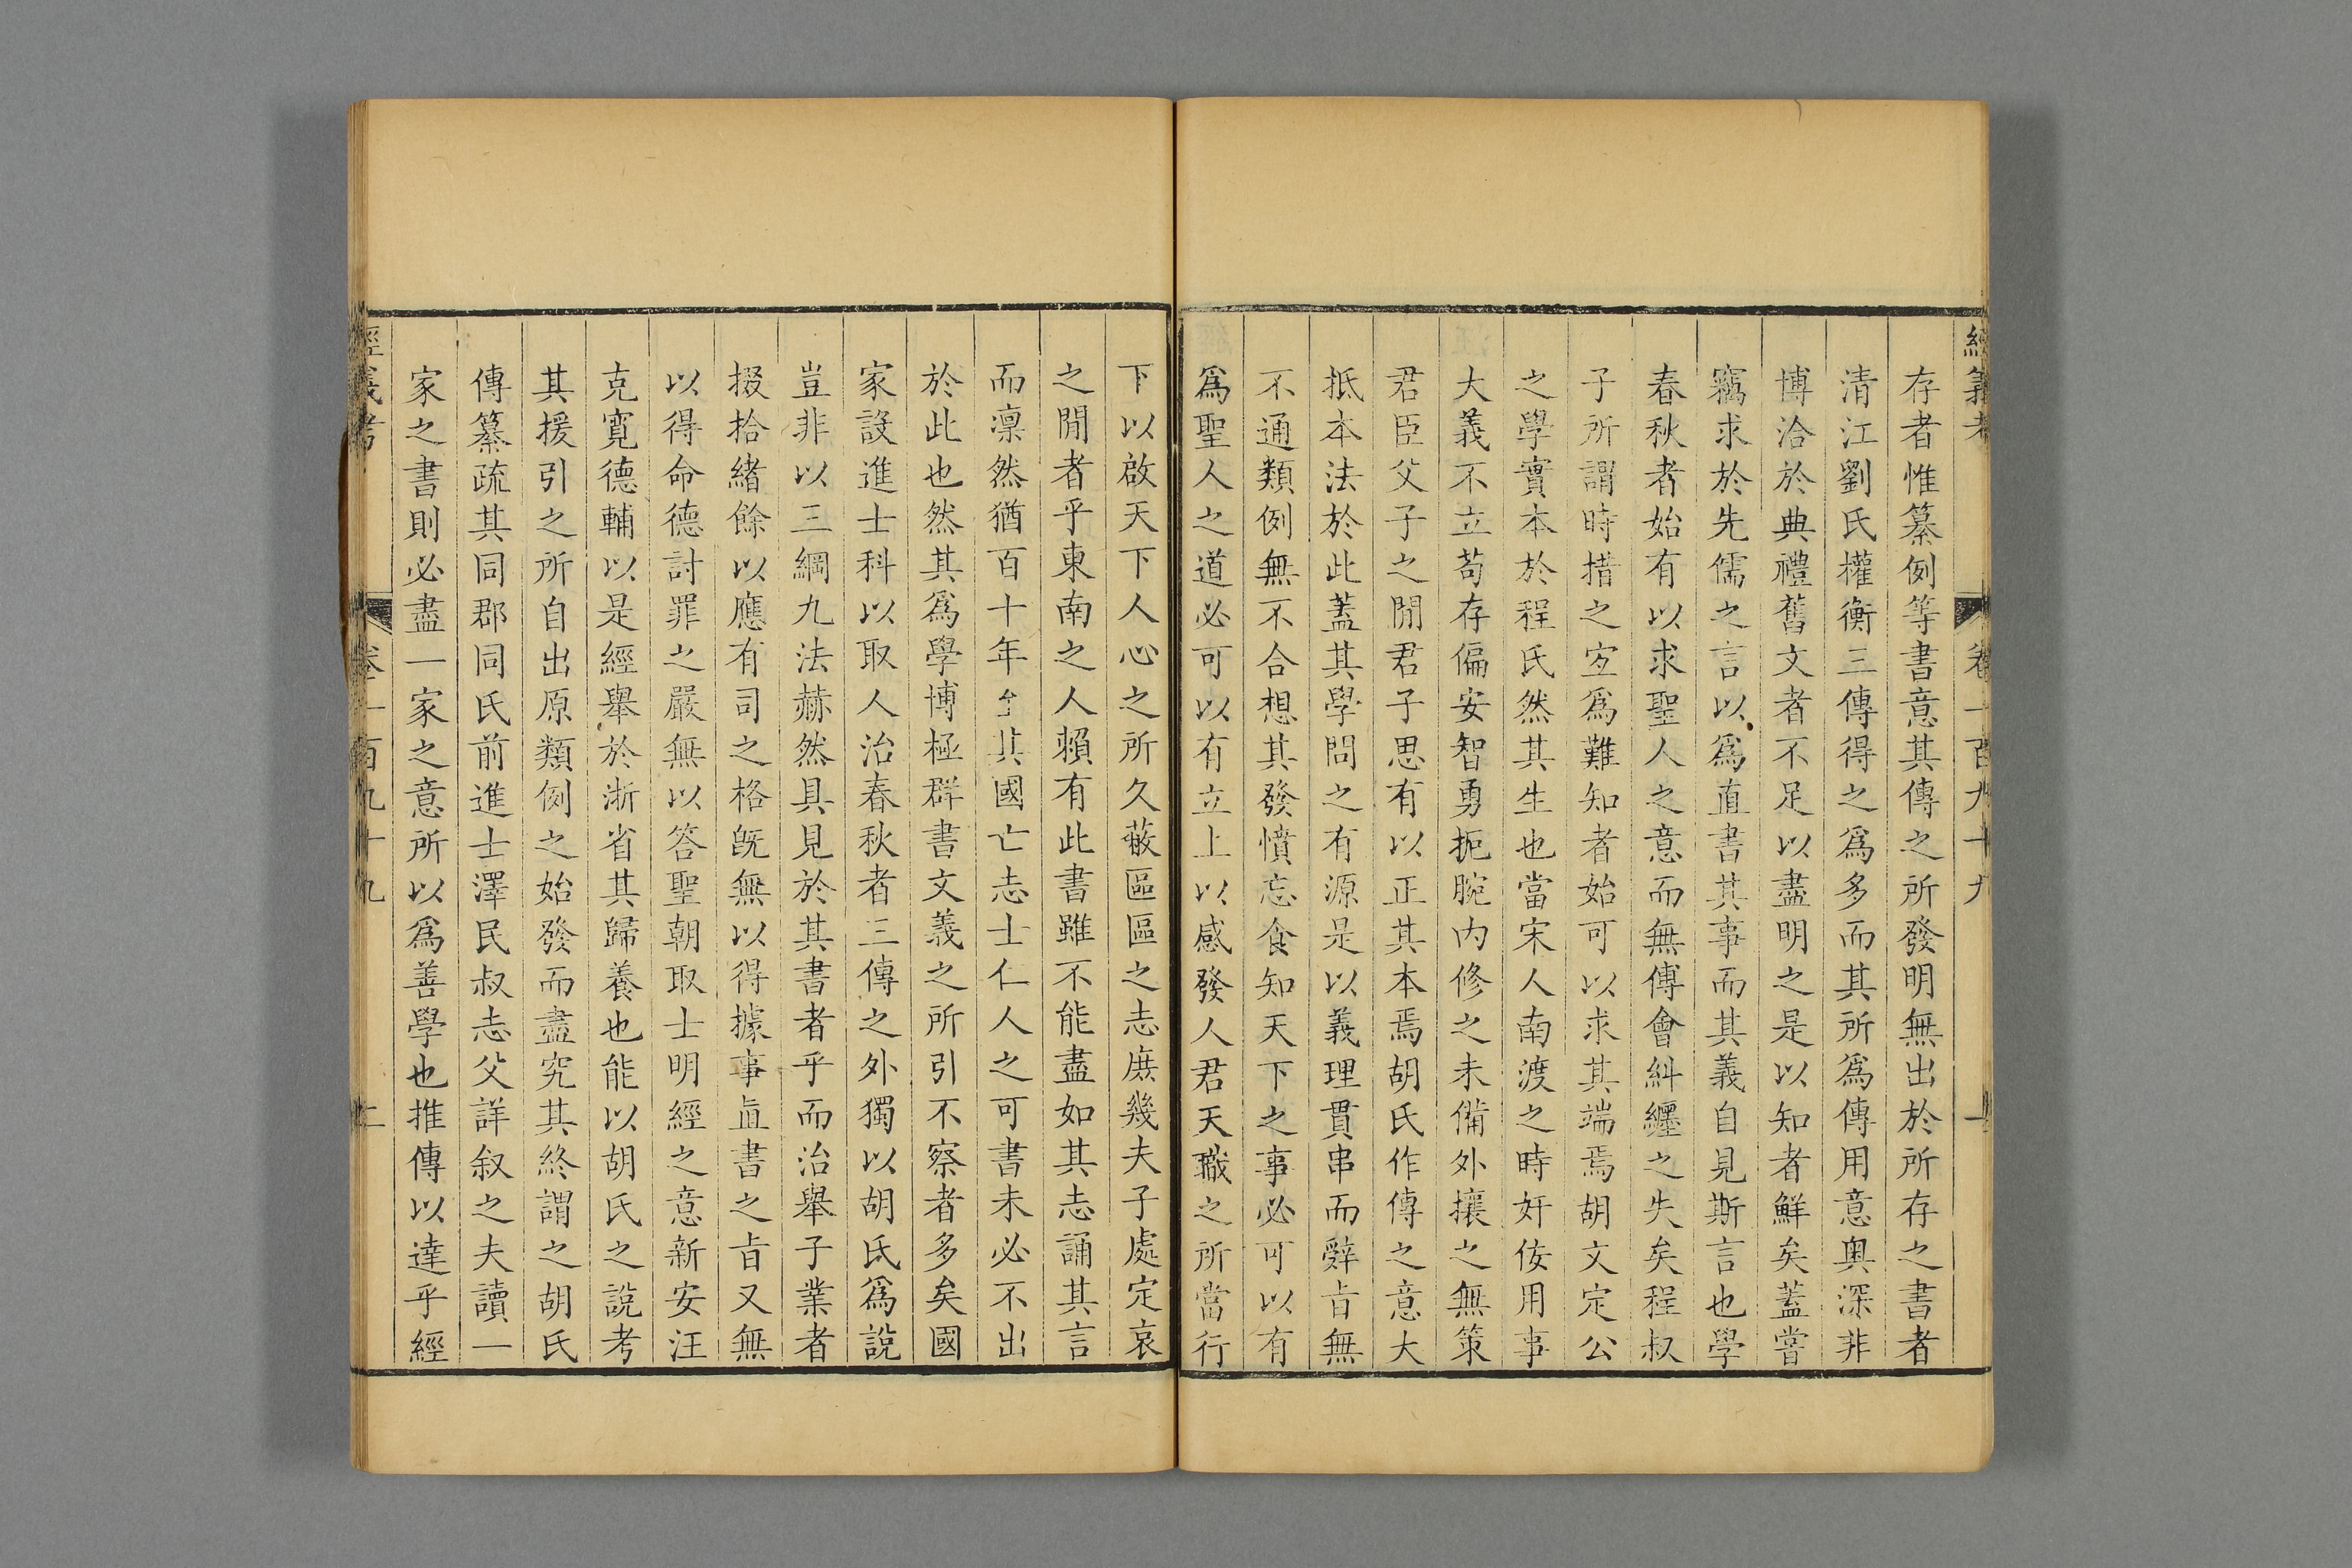 經義考 卷一百九十九 一
存者惟纂例等書意其傳之所發明無出於所存之書者
清江劉氏權衡三傳得之爲多而其所爲傳用意奥深非
博洽於典禮舊文者不足以盡明之是以知者鮮矣蓋嘗
竊求於先儒之言以爲直書其事而其義自見斯言也學
春秋者始有以求聖人之意而無傅會糾纒之失矣程叔
子所謂時措之宐爲難知者始可以求其端焉胡文定公
之學實本於程氏然其生也當宋人南渡之時奸佞用事
大義不立苟存偏安智勇扼腕内修之未備外攘之無策
君臣父子之閒君子思有以正其本焉胡氏作傳之意大
抵本法於此蓋其學問之有源是以義理貫串而辭旨無
不通類例無不合想其發憤忘食知天下之事必可以有
爲聖人之道必可以有立上以感發人君天職之所當行
下以啟天下人心之所久蔽區區之志庶幾夫子處定哀
之閒者乎東南之人賴有此書雖不能盡如其志誦其言
而凛然猶百十年至其國亡志士仁人之可書未必不出
於此也然其爲學博極群書文義之所引不察者多矣國
家設進士科以取人治春秋者三傳之外獨以胡氏爲說
豈非以三綱九法赫然具見於其書者乎而治舉子業者
掇拾緒餘以應有司之格旣無以得據事直書之旨又無
以得命德討罪之嚴無以答聖朝取士明經之意新安汪
克寬德輔以是經舉於浙省其歸養也能以胡氏之說考
其援引之所自出原類例之始發而盡究其終謂之胡氏
傳纂疏其同郡同氏前進士澤民叔志父詳叙之夫讀一
家之書則必盡一家之意所以爲善學也推傳以達乎經
經義考 卷一百九十九 二